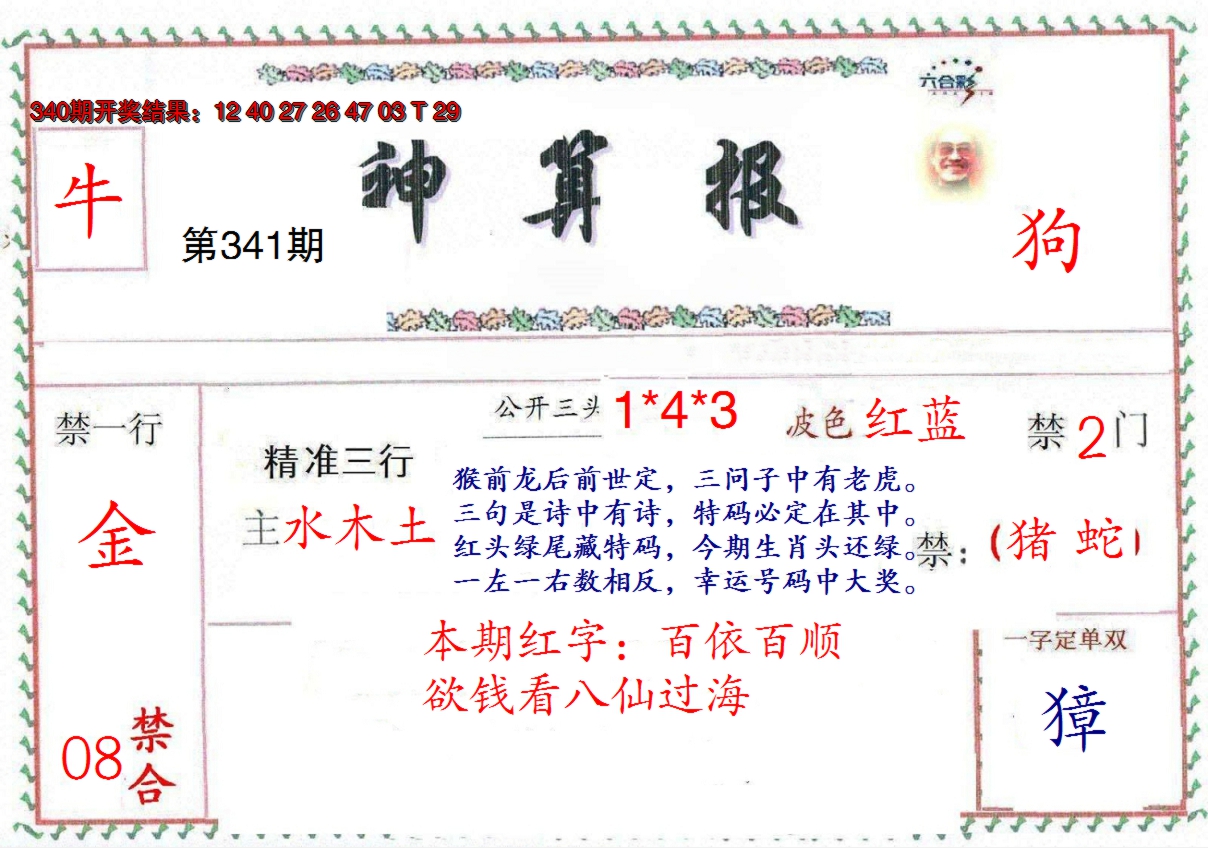 六合彩
340期开奖结果：12 40 27 26 47 03 T 29
牛
神算报
第341期
狗
禁一行
金
08
禁合
公开三头 1*4*3
波色 红蓝
禁2门
精准三行
主水木土
猴前龙后前世定，三问子中有老虎。
三句是诗中有诗，特码必定在其中。
红头绿尾藏特码，今期生肖头还绿。
一左一右数相反，幸运号码中大奖。
禁：(猪 蛇)
本期红字：百依百顺
欲钱看八仙过海
一字定单双
獐